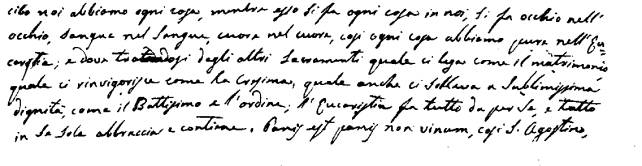 cibo noi abbiamo ogni cosa, mentre esso si fa ogni cosa in noi, si fa occhio nell'
occhio, sangue nel sangue, cuore nel cuore, così ogni cosa abbiamo pure nell'Eu-
carestia; e dove trattandosi degli altri Sacramenti quale ci lega come il matrimonio
quale ci rinvigorisce come la Cresima, quale anche ci solleva a sublimissima
dignità, come il Battesimo e l'ordine; l'Eucaristia fa tutto da per se, e tutto
in se sola abbraccia e contiene. Panis est panis non vinum, così S. Agostino,